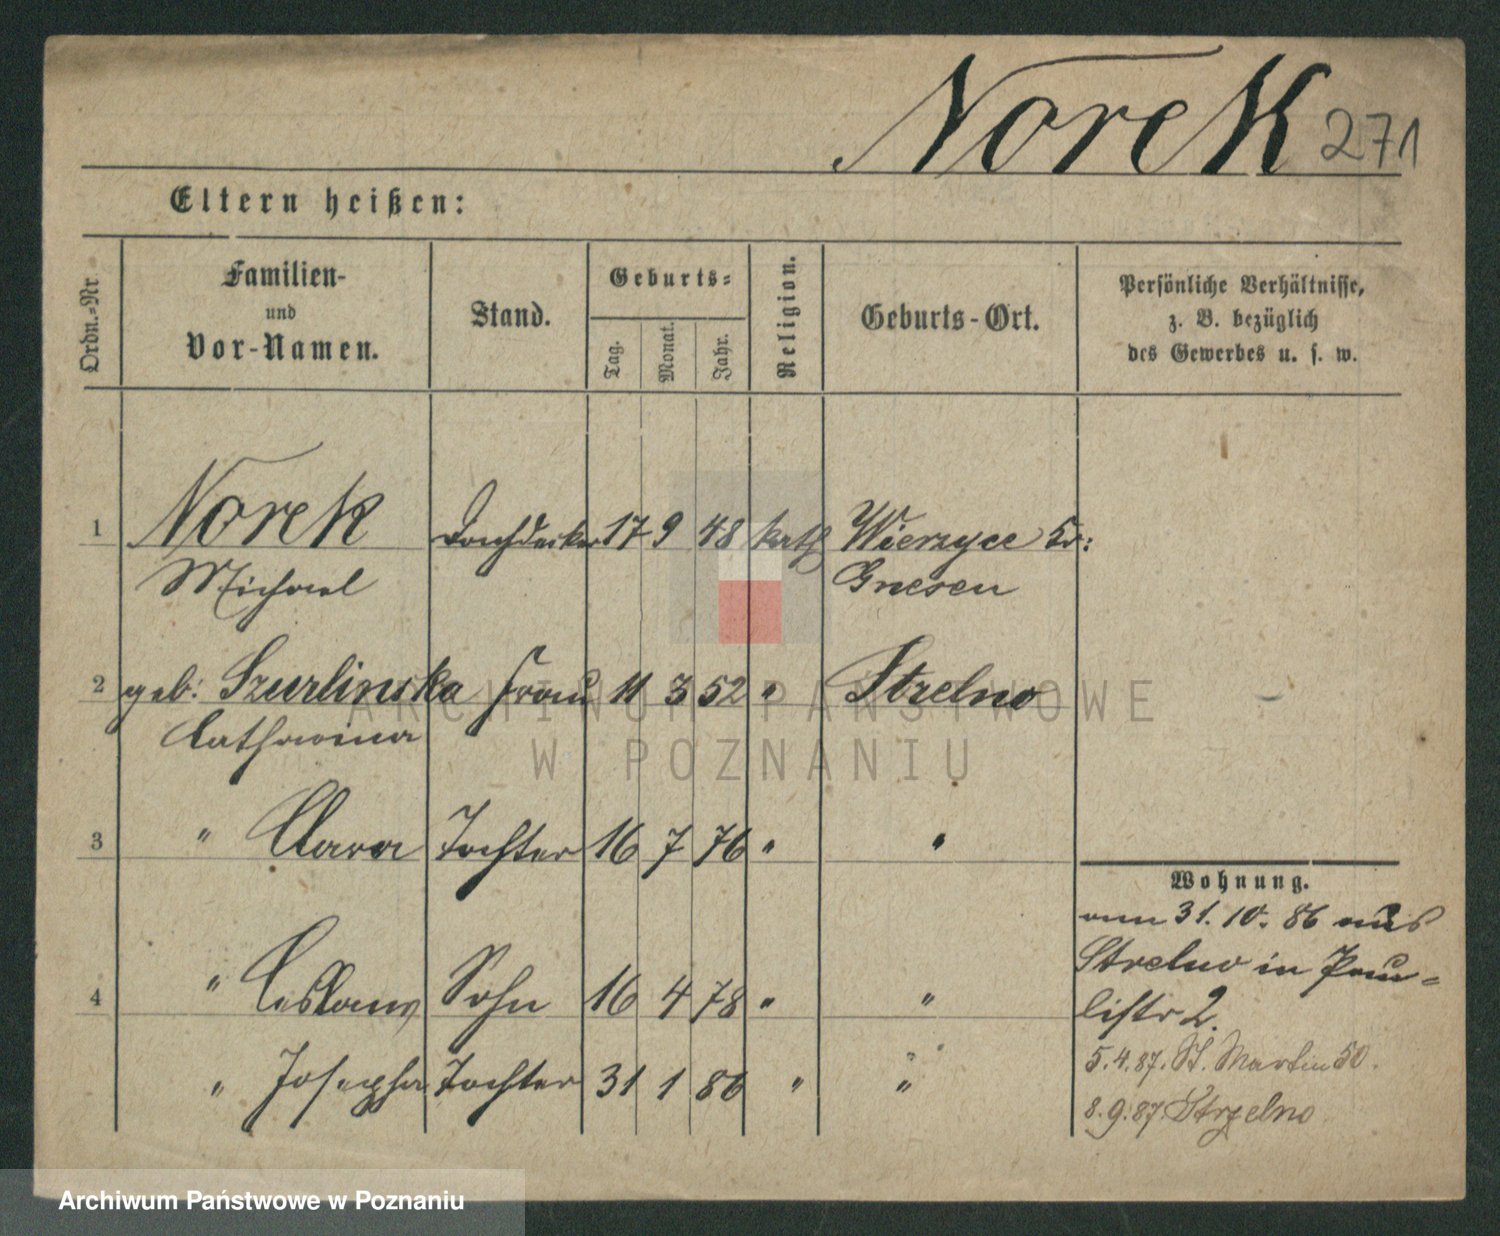 Norek 271
Eltern heißen:
Ordn.-Nr
Familien-
und
Vor-Namen.
Stand.
Geburts-
Tag.
Monat.
Jahr.
Religion.
Geburts-Ort.
Persönliche Verhältnisse,
z. B. bezüglich
des Gewerbes u. s. w.
1 Norek Dachdecker 17 9 48 kath Wierzyce Kr:
Michael Gnesen
2 geb: Szurlinska Frau 11 3 52 " Strelno
Catharina
ARCHIWUM PAŃSTWOWE
W POZNANIU
3 " Clara Tochter 16 7 76 " "
Wohnung.
4 " Ceslaus Sohn 16 4 78 " "
" Josepha Tochter 31 1 86 " "
vom 31. 10. 86 aus
Strelno in Pau-
listr 2.
5.4.87. St. Martin 50.
8.9.87 Strzelno
Archiwum Państwowe w Poznaniu